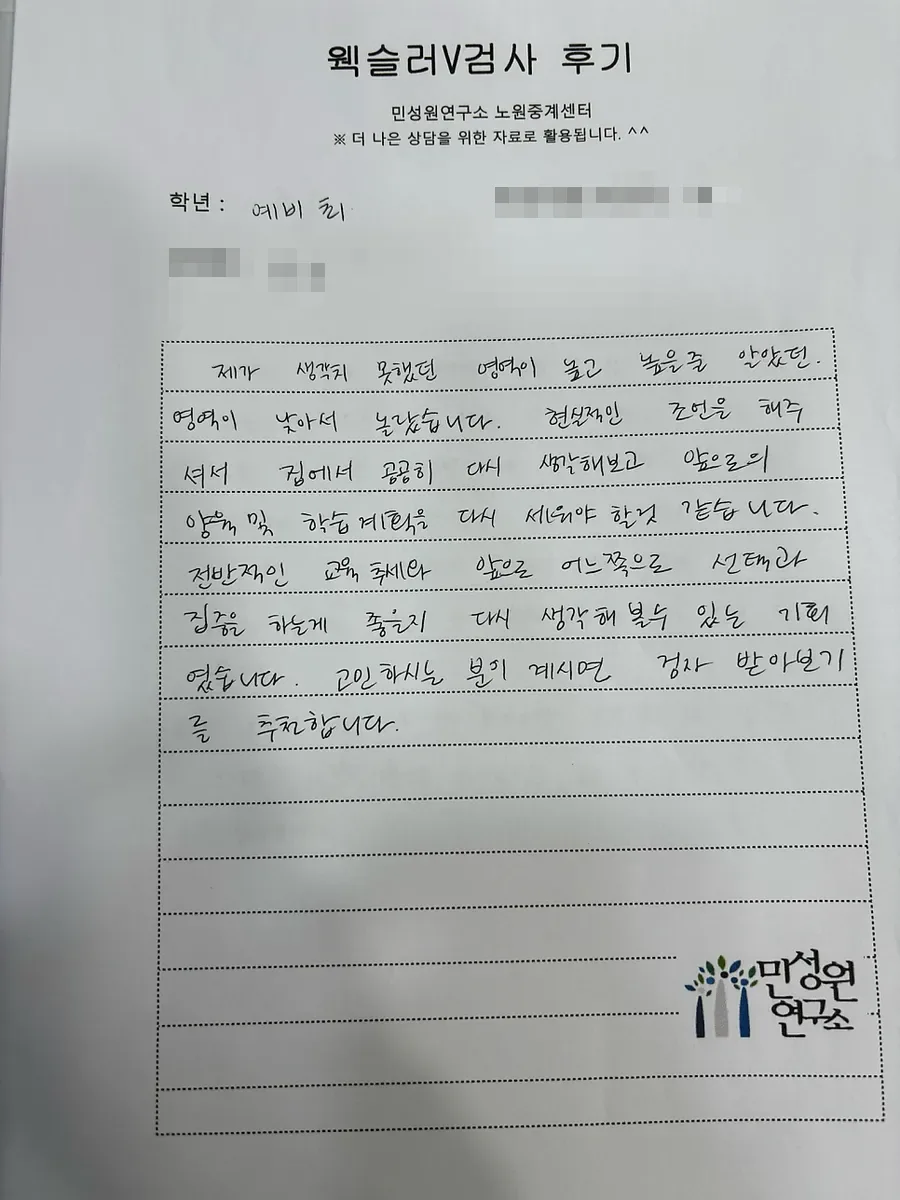 웩슬러V검사 후기
민성원연구소 노원중계센터
※ 더 나은 상담을 위한 자료로 활용됩니다. ^^
학년 : 예비 초1
제가 생각치 못했던 영역이 높고 높을줄 알았던.
영역이 낮아서 놀랐습니다. 현실적인 조언을 해주
셔서 집에서 곰곰히 다시 생각해보고 앞으로의
양육 및 학습계획을 다시 세워야 할것 같습니다.
전반적인 교육 추세와 앞으로 어느쪽으로 선택과
집중을 하는게 좋을지 다시 생각해 볼수 있는 기회
였습니다. 고민하시는 분이 계시면 검사 받아보기
를 추천합니다.
민성원
연구소